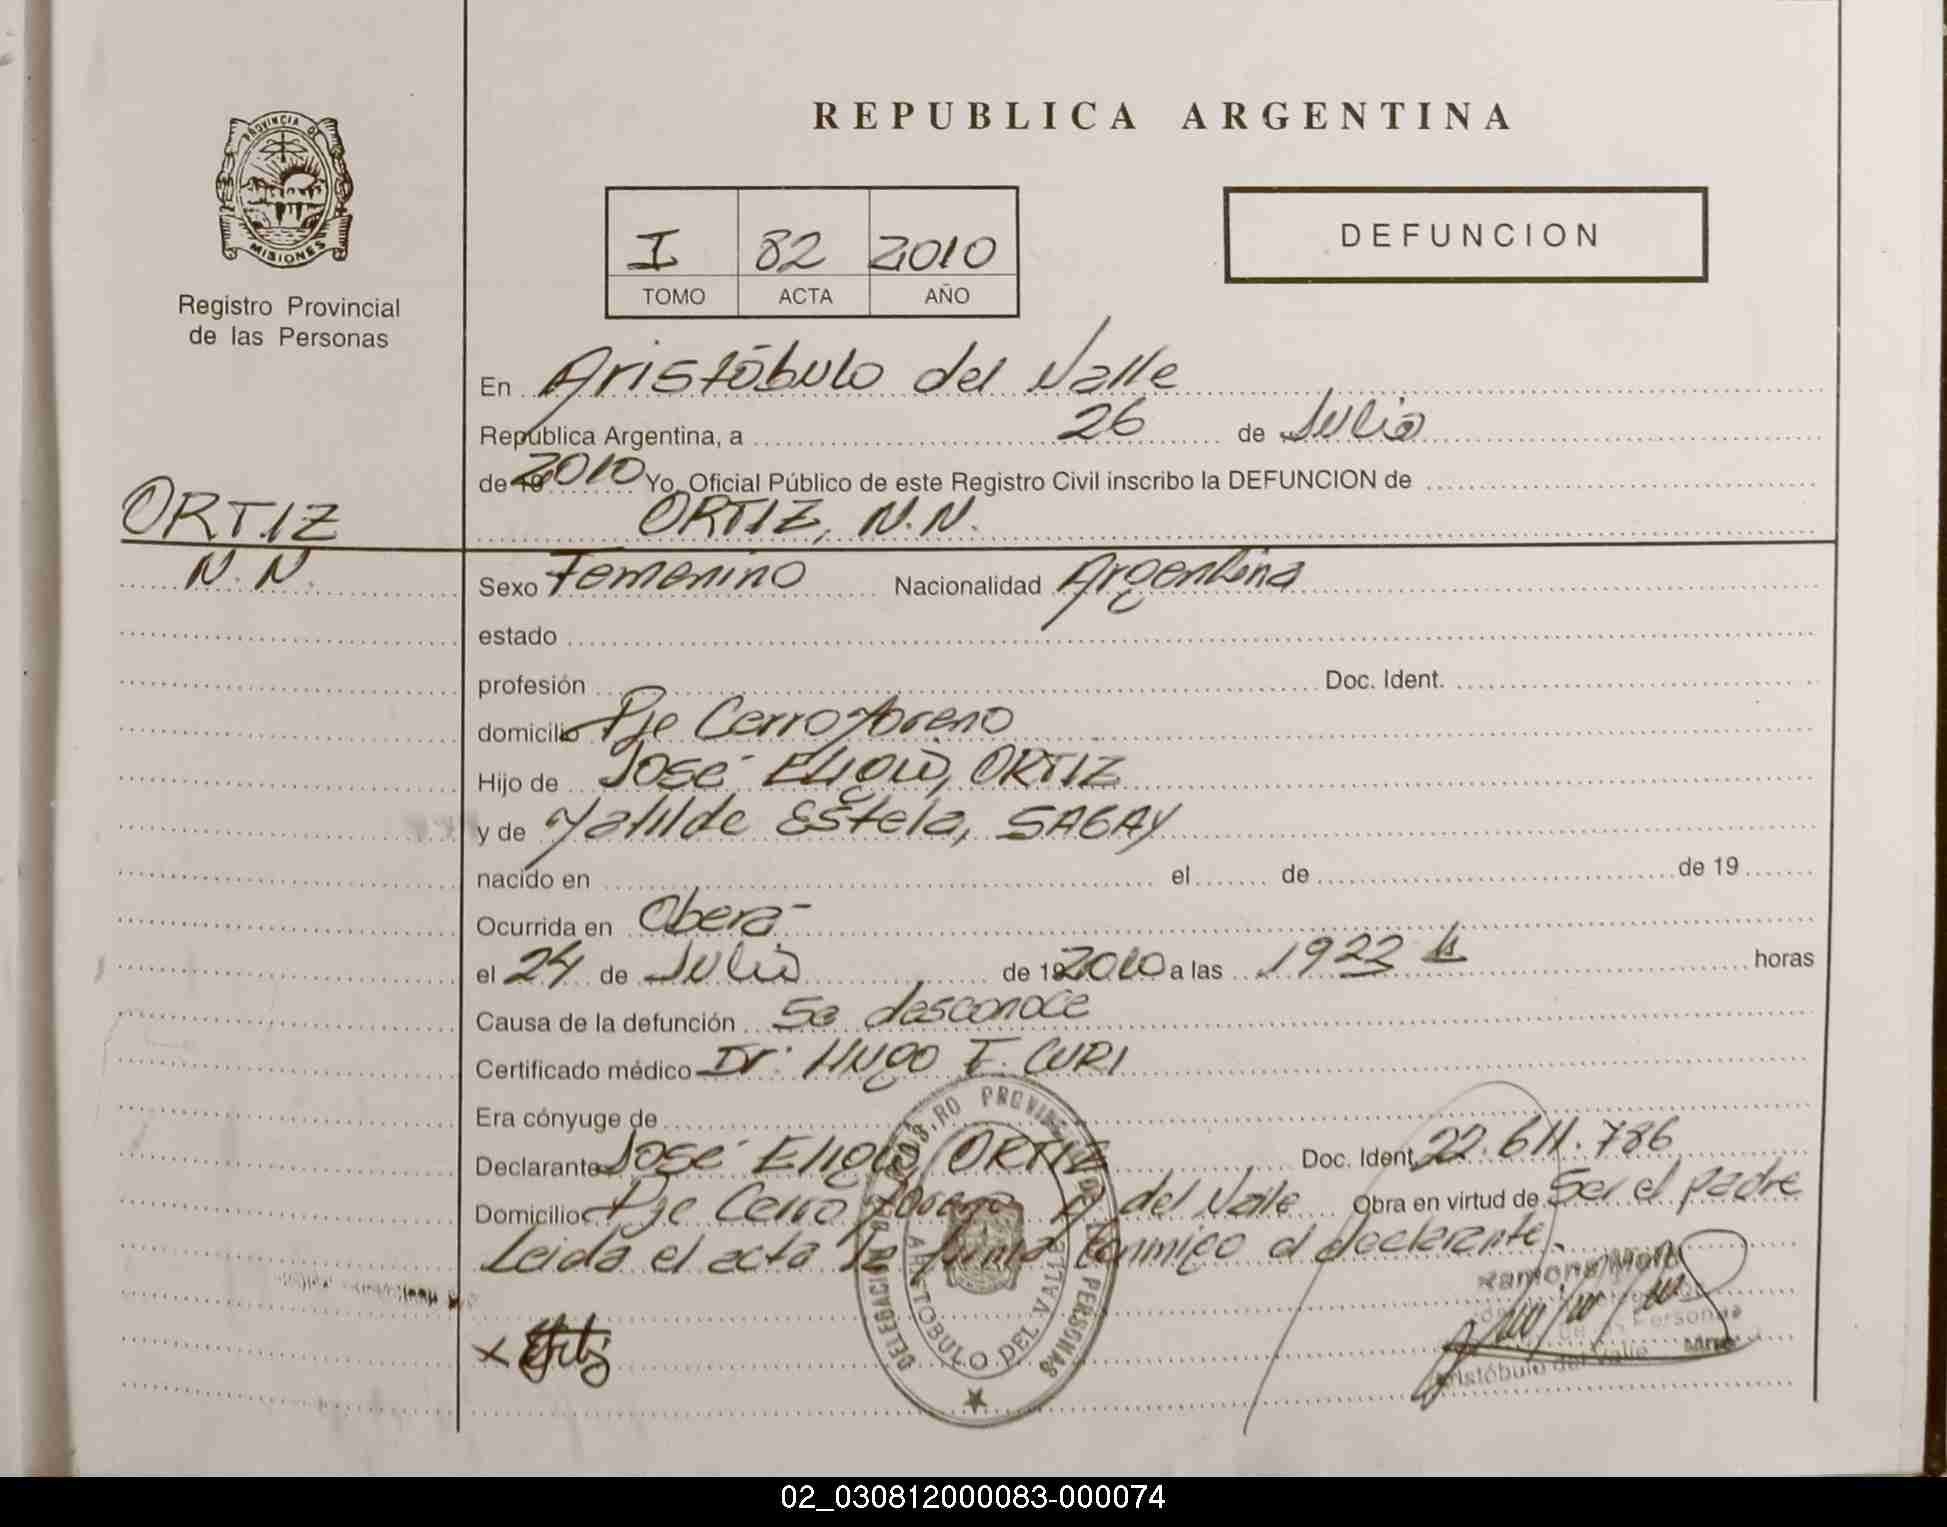 REPUBLICA ARGENTINA
PROVINCIA DE
MISIONES
Registro Provincial
de las Personas
I 82 2010
TOMO ACTA AÑO
DEFUNCION
En Aristóbulo del Valle
República Argentina, a 26 de Julio
de 19 2010 Yo, Oficial Público de este Registro Civil inscribo la DEFUNCION de
ORTIZ, N.N.
ORTIZ
N.N.
Sexo Femenino Nacionalidad Argentina
estado
profesión Doc. Ident.
domicilio Pje Cerro Moreno
Hijo de José Eligio, ORTIZ
y de Matilde Estela, SAGAY
nacido en el de de 19
Ocurrida en Oberá
el 24 de Julio de 19 2010 a las 1923 horas
Causa de la defunción Se desconoce
Certificado médico Dr. HUGO F. CURI
Era cónyuge de
Declarante José Eligio, ORTIZ Doc. Ident. 22.611.786
Domicilio Pje Cerro Moreno A del Valle Obra en virtud de Ser el padre
Leída el acta la firma conmigo el declarante.
PERSONAS
ARISTOBULO DEL VALLE
DELEGACION
Aristóbulo del Valle
02_030812000083-000074